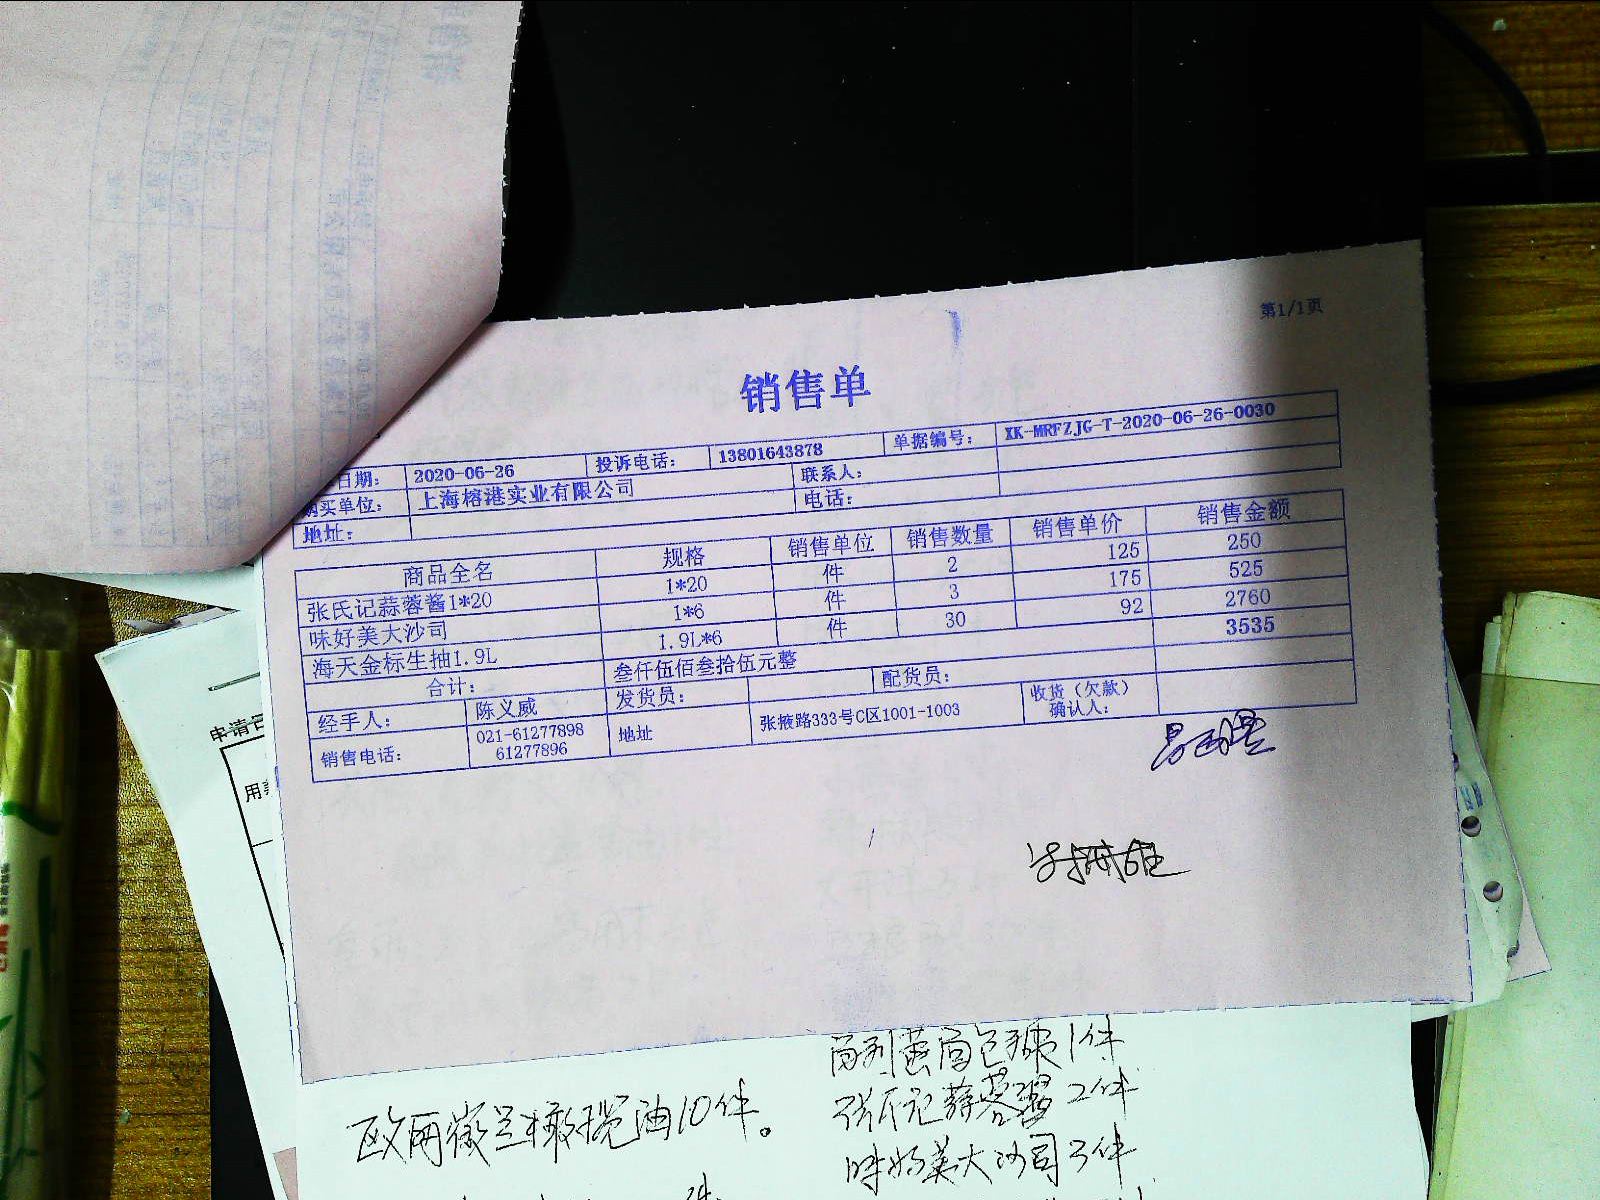 第1/1页
销售单
日期: 2020-06-26 投诉电话: 13801643878 单据编号: XK-MRFZJG-T-2020-06-26-0030
购买单位: 上海榕港实业有限公司 联系人:
地址: 电话:
商品全名 规格 销售单位 销售数量 销售单价 销售金额
张氏记蒜蓉酱1*20 1*20 件 2 125 250
味好美大沙司 1*6 件 3 175 525
海天金标生抽1.9L 1.9L*6 件 30 92 2760
合计: 叁仟伍佰叁拾伍元整 3535
经手人: 陈义威 发货员: 配货员:
销售电话: 021-61277898 61277896 地址 张掖路333号C区1001-1003 收货(欠款)确认人:
申请
用
1件
欧丽薇兰橄榄油10件。
张氏记蒜蓉酱2件
味好美大沙司3件